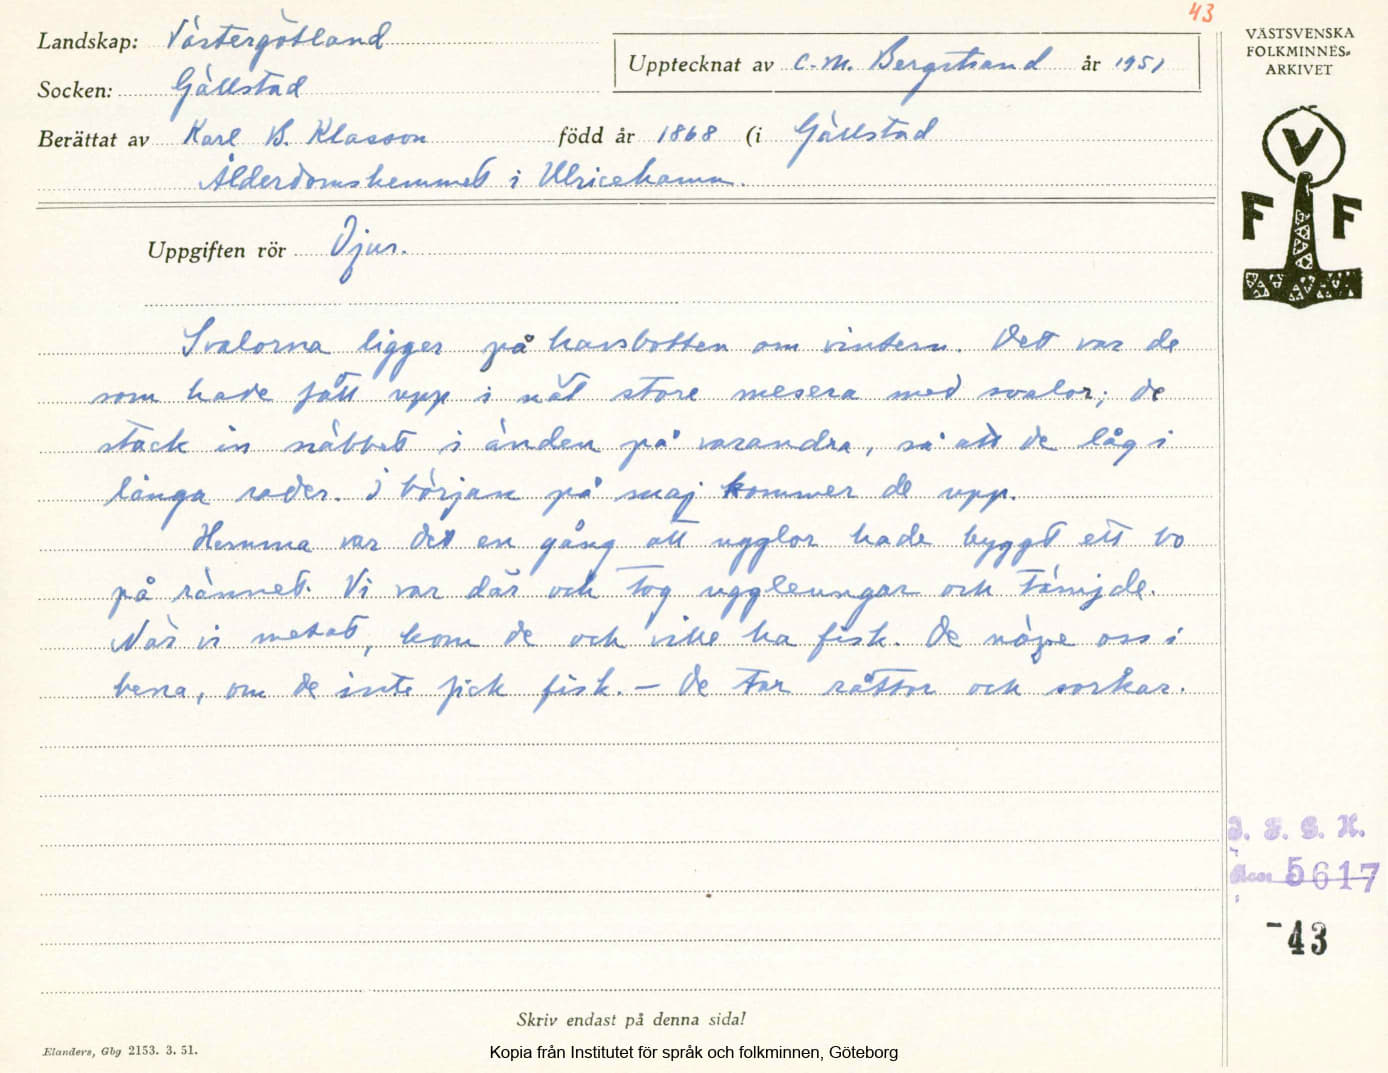 43
Landskap: Västergötland
Upptecknat av C.M. Bergstrand år 1951
Socken: Gällstad
Berättat av Karl B. Klasson född år 1868 (i Gällstad
Ålderdomshemmet i Ulricehamn.
Uppgiften rör Djur.
Svalorna ligger på havsbotten om vintern. Dett var de
som hade fått upp i nåt store mesera med svalor; de
stack in näbbet i änden på varandra, så att de låg i
långa rader. I början på maj kommer de upp.
Hemma var det en gång att ugglor hade byggt ett bo
på rännet. Vi var där och tog uggleungar och tämjde.
När vi metat, kom de och ville ha fisk. De nöpe oss i
bena, om de inte fick fisk. – De tar råttor och sorkar.
Skriv endast på denna sida!
Elanders, Gbg 2153. 3. 51.
Kopia från Institutet för språk och folkminnen, Göteborg
VÄSTSVENSKA
FOLKMINNES-
ARKIVET
V
F F
I. F. G. H.
Acc 5617
-43